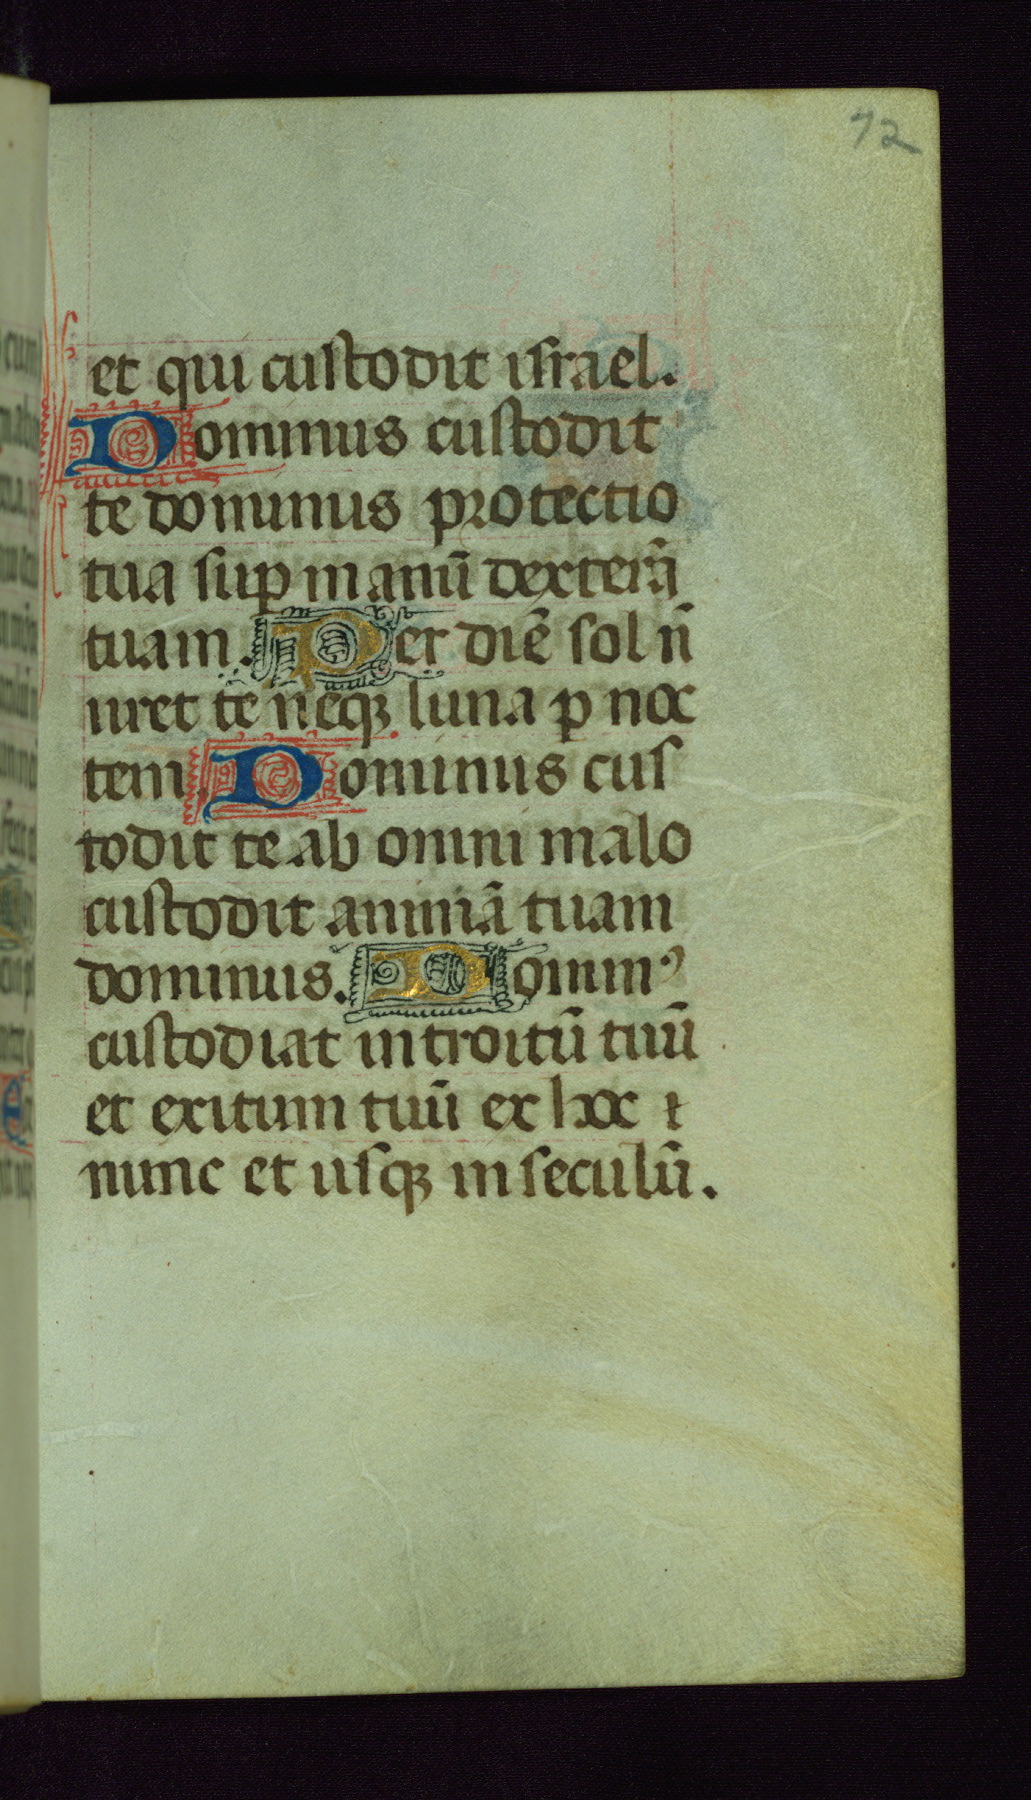 72
et qui custodit israel.
Dominus custodit
te dominus protectio
tua sup manū dexterā
tuam. Per diē sol n̄
uret te neqꝫ luna p noc
tem. Dominus cus
todit te ab omni malo
custodit animā tuam
dominus. Dominꝰ
custodiat introitū tuū
et exitum tuū ex hoc ⁊
nunc et usqꝫ in seculū.